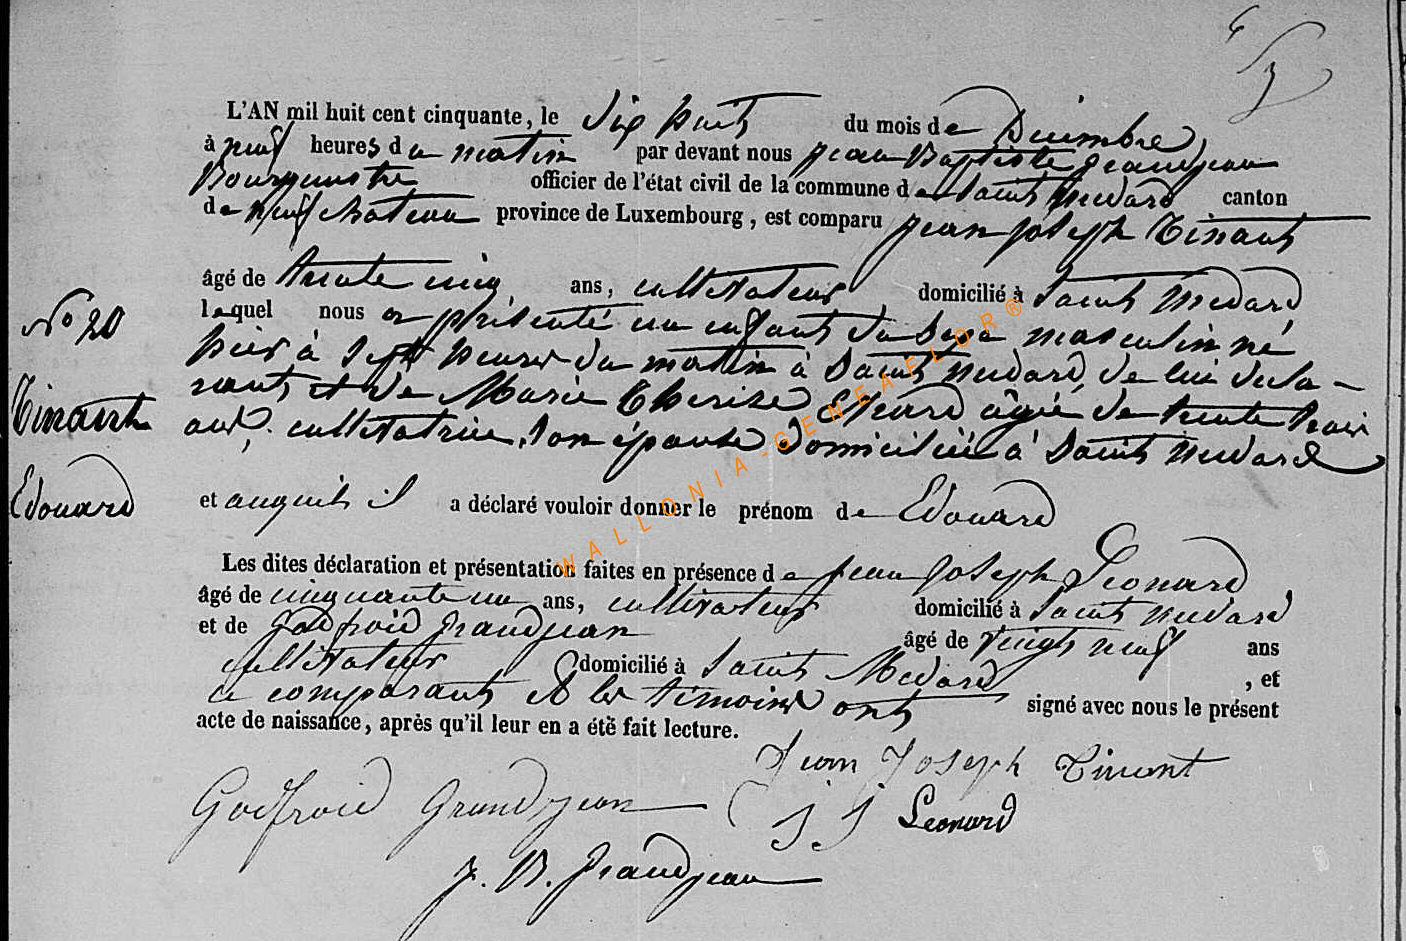 L'AN mil huit cent cinquante, le dix huit du mois de Decembre,
à neuf heures du matin par devant nous Jean Baptiste Grandjean
Bourgmestre officier de l'état civil de la commune de Saint Medard canton
de Neufchateau province de Luxembourg, est comparu Jean Joseph Tinant
âgé de trente cinq ans, cultivateur domicilié à Saint Medard
lequel nous a présenté un enfant du sexe masculin né
hier à sept heures du matin à Saint Medard, de lui décla-
rant et de Marie Therese Evrard âgée de trente trois
ans, cultivatrice, son épouse domiciliée à Saint Medard
et auquel il a déclaré vouloir donner le prénom de Edouard
No 20
Tinant
Edouard
Les dites déclaration et présentation faites en présence de Jean Joseph Leonard
âgé de cinquante un ans, cultivateur domicilié à Saint Medard
et de Godfroid Grandjean âgé de vingt neuf ans
cultivateur domicilié à Saint Medard, et
ce comparant et les témoins ont signé avec nous le présent
acte de naissance, après qu'il leur en a été fait lecture.
Jean Joseph Tinant
Godfroid Grandjean J J Leonard
J. B. Grandjean
WALLONIA-GENEAELOR®